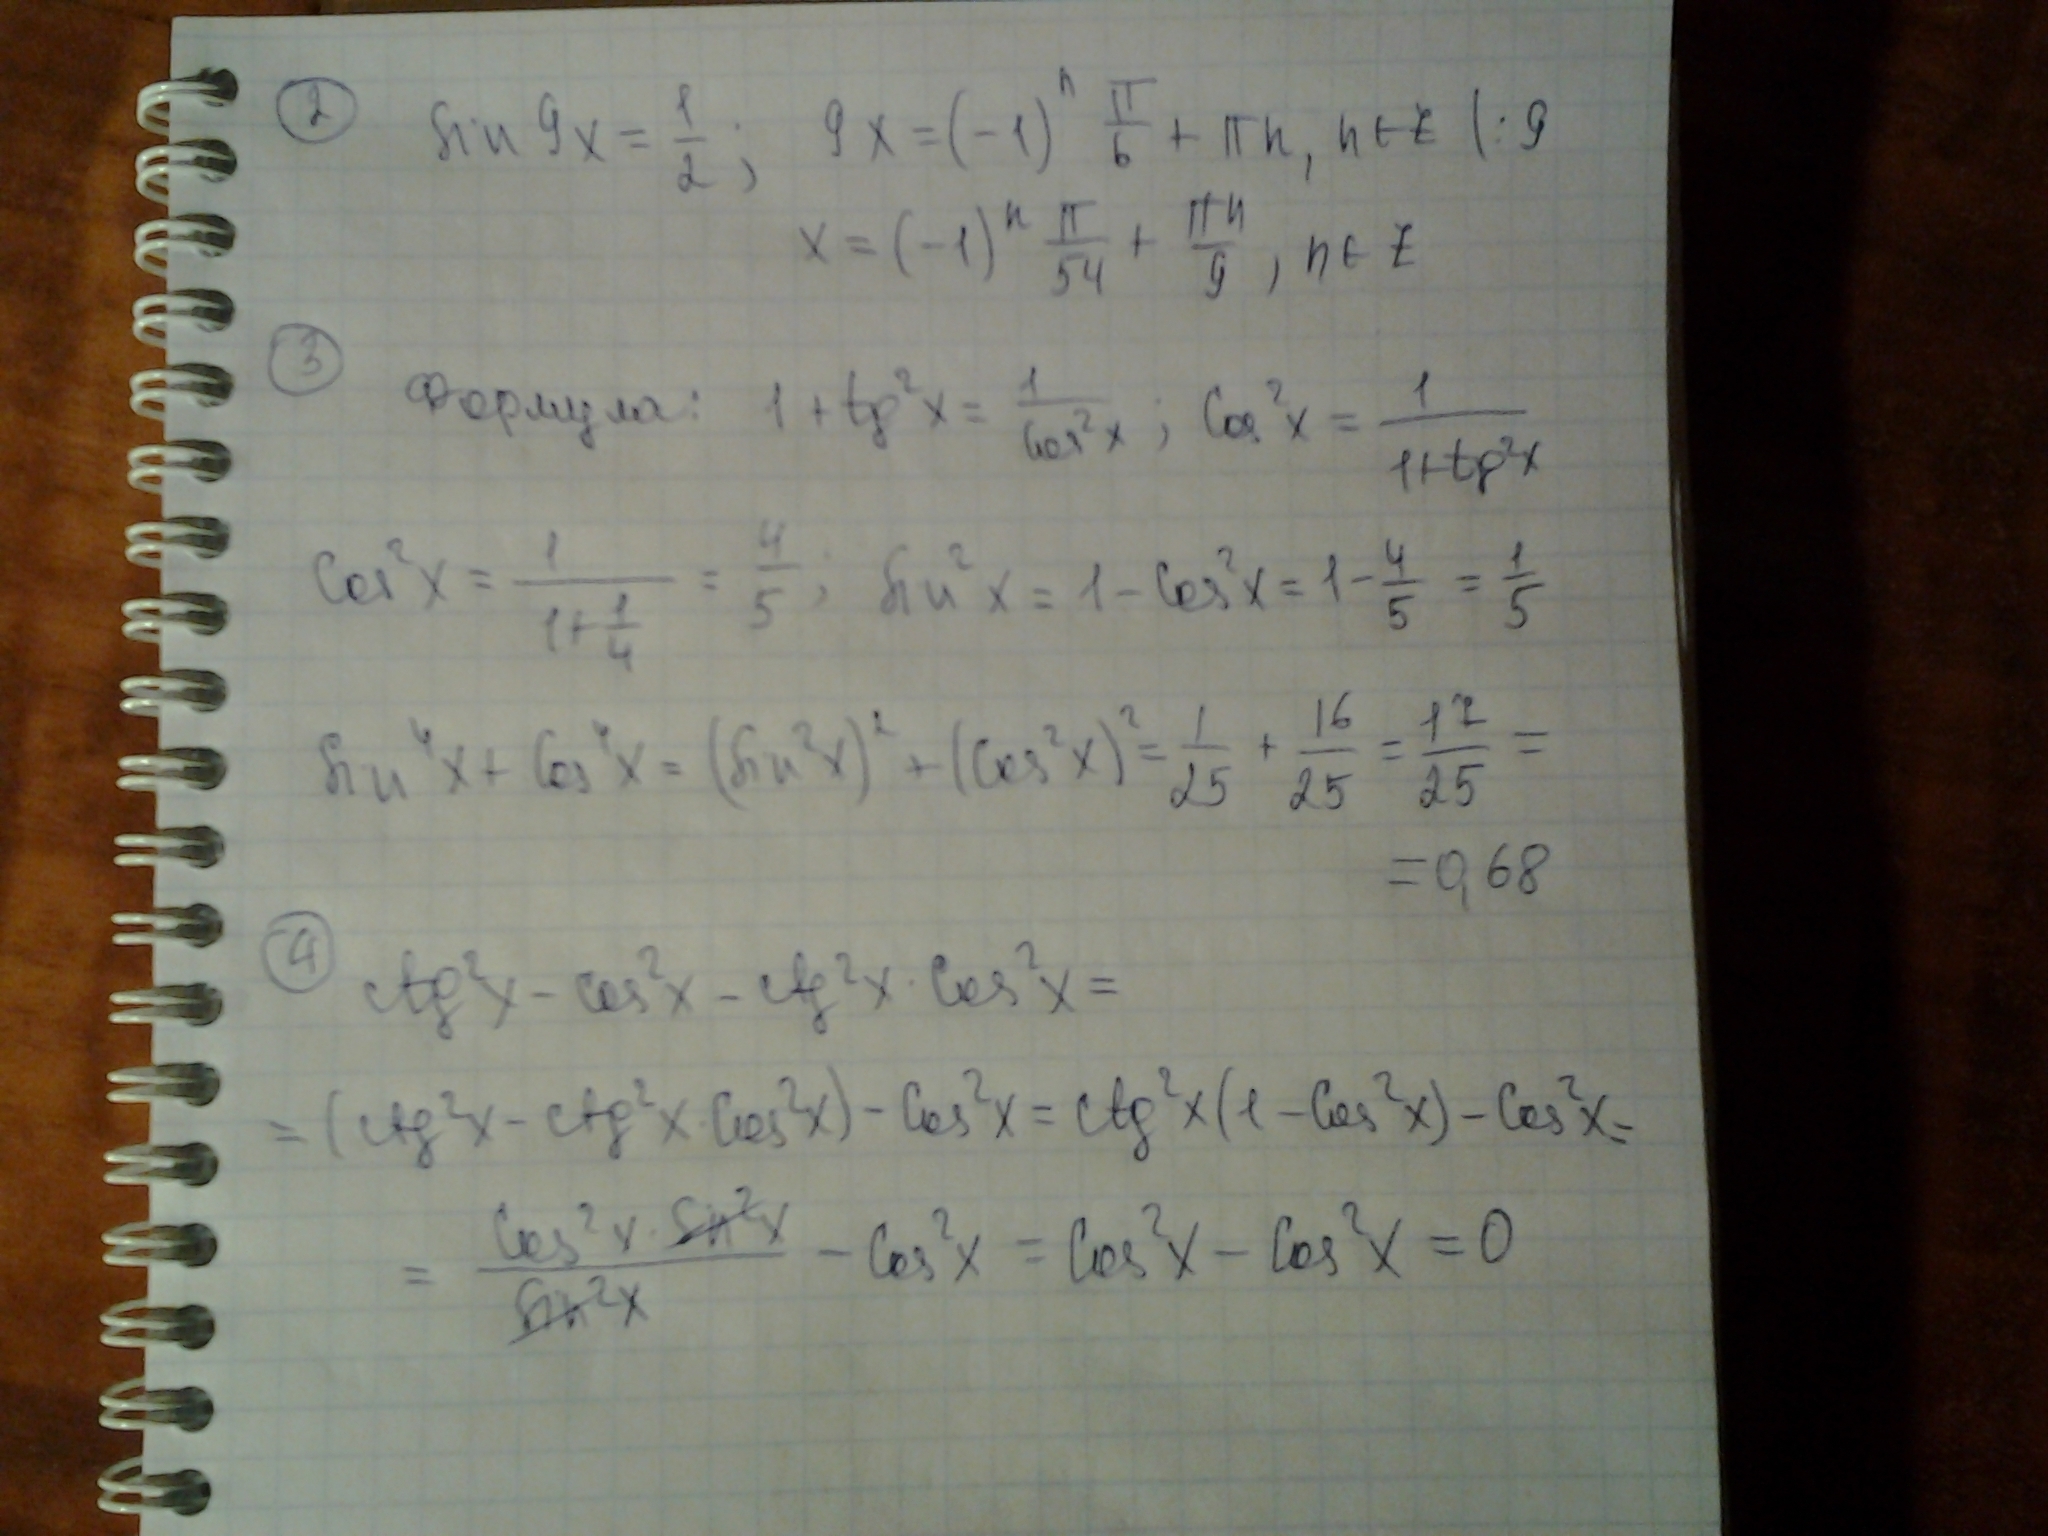 ② sin 9x = 1/2; 9x = (-1)ⁿ π/6 + πn, n∈Z |:9
x = (-1)ⁿ π/54 + πn/9, n∈Z
③ Формула: 1 + tg²x = 1/cos²x; cos²x = 1/(1+tg²x)
cos²x = 1/(1+1/4) = 4/5; sin²x = 1 - cos²x = 1 - 4/5 = 1/5
sin⁴x + cos⁴x = (sin²x)² + (cos²x)² = 1/25 + 16/25 = 17/25 =
= 0,68
④ ctg²x - cos²x - ctg²x · cos²x =
= (ctg²x - ctg²x · cos²x) - cos²x = ctg²x(1 - cos²x) - cos²x =
= cos²x · sin²x / sin²x - cos²x = cos²x - cos²x = 0